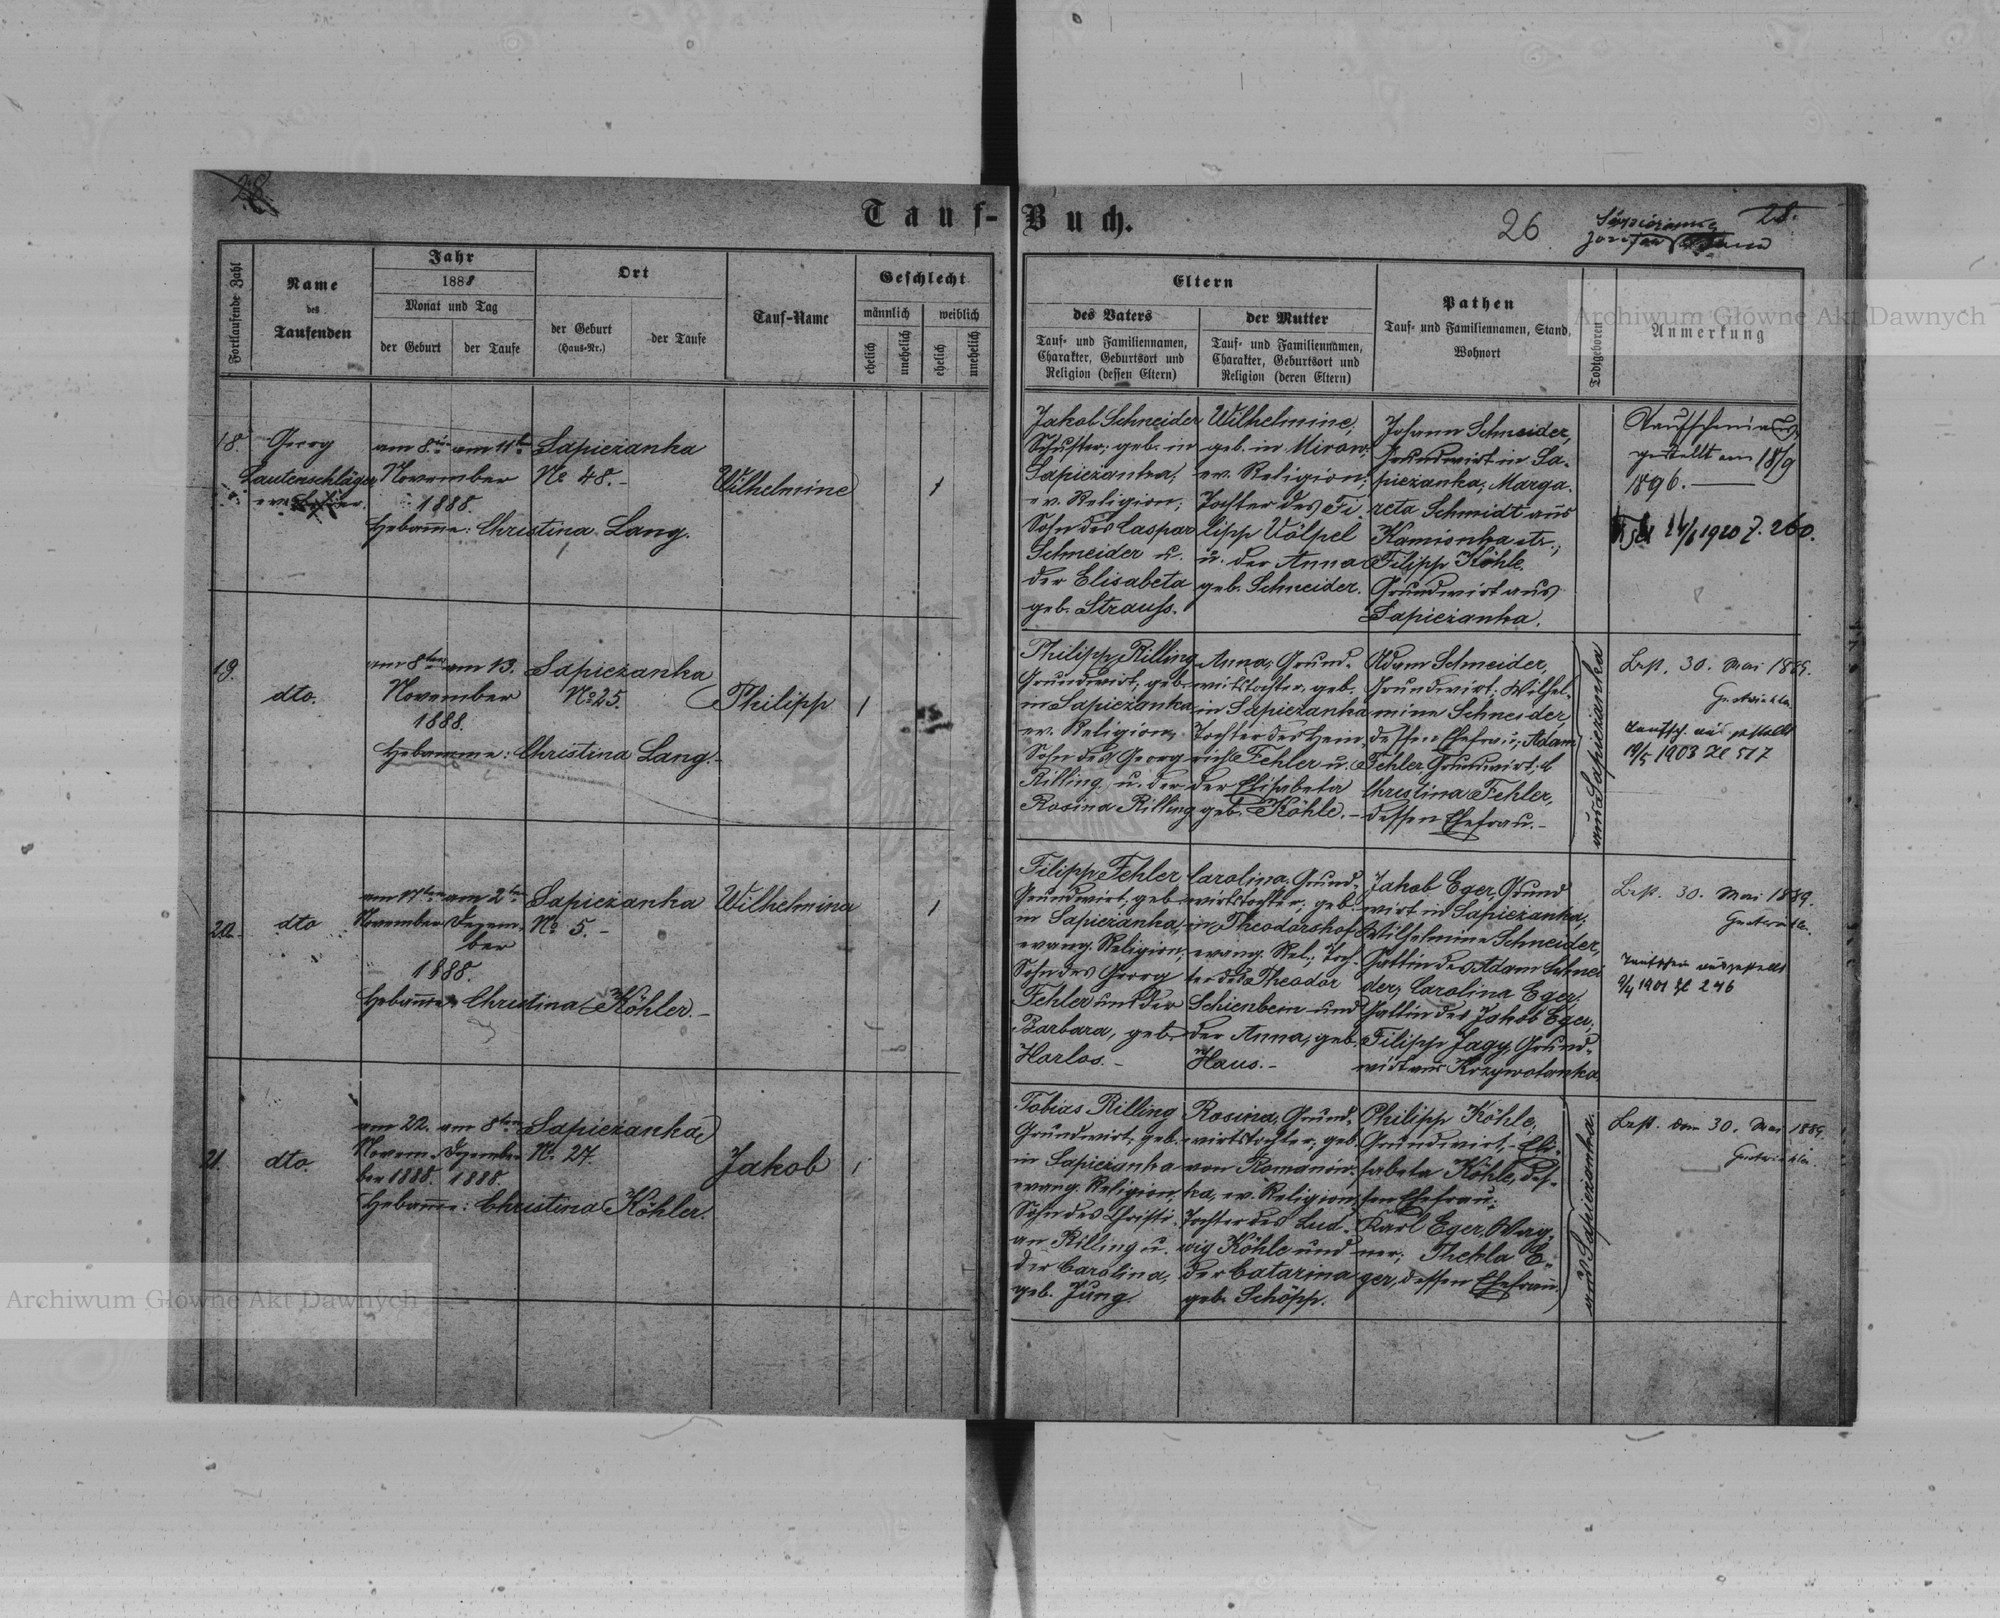 28.
Tauf-Buch.
26
28.
Fortlaufende Zahl
Name
des
Taufenden
Jahr
1888
Monat und Tag
der Geburt
der Taufe
Ort
der Geburt
(Haus-Nr.)
der Taufe
Tauf-Name
Geschlecht
männlich
weiblich
ehelich
unehelich
ehelich
unehelich
Eltern
des Vaters
Tauf- und Familiennamen,
Charakter, Geburtsort und
Religion (dessen Eltern)
der Mutter
Tauf- und Familiennamen,
Charakter, Geburtsort und
Religion (deren Eltern)
Pathen
Tauf- und Familiennamen, Stand,
Wohnort
Todtgeboren
Anmerkung
18.
Georg
Lautenschläger
am 8ten am 11ten
November
1888.
Hebamme: Christina Lang.
Sapiezanka
No 48.-
Wilhelmine
1
Jakob Schneider
Schuster, geb. in
Sapiezanka,
ev. Religion;
Sohn des Caspar
Schneider u.
der Elisabeta
geb. Strauss.
Wilhelmine,
geb. in Mirow,
ev. Religion;
Tochter des Fi
lipp Völpel
u. der Anna
geb. Schneider.
Johann Schneider,
Grundwirt in Sa-
piezanka; Marga-
reta Schmidt aus
Kamionka str.;
Filipp Köhle,
Grundwirt aus
Sapiezanka.
Taufschein aus-
gestellt am 18/9
1896.
1920 Z. 260.
19.
dto.
am 8ten am 13.
November
1888.
Hebamme: Christina Lang.-
Sapiezanka
No 25.
Philipp
1
Philipp Rilling
Grundwirt, geb.
in Sapiezanka
ev. Religion,
Sohn des Georg
Rilling u. der
Rosina Rilling
Anna, Grund-
wirtstochter, geb.
in Sapiezanka
Tochter des Hein-
rich Fehler u.
der Elisabeta
geb. Köhle.-
Adam Schneider,
Grundwirt; Wilhel-
mine Schneider,
dessen Ehefrau; Adam
Fehler Grundwirt, &
Christina Fehler,
dessen Ehefrau.-
aus Sapiezanka
Best. 30. Mai 1889.
Taufsch. ausgestellt
19/5 1903 Zl 517
20.
dto
am 17ten am 2ten
November Dezem-
ber
1888.
Hebamme: Christina Köhler.-
Sapiezanka
No 5.-
Wilhelmina
1
Filipp Fehler
Grundwirt, geb.
in Sapiezanka,
evang. Religion,
Sohn des Georg
Fehler und der
Barbara, geb.
Horlos.-
Carolina, Grund-
wirtstochter, geb.
in Theodorshof
evang. Rel.; Toch-
ter des Theodor
Schienbein und
der Anna, geb.
Haus.-
Jakob Eger, Grund
wirt in Sapiezanka;
Wilhelmine Schneider,
Gattin des Adam Schnei
der; Carolina Eger,
Gattin des Jakob Eger;
Filipp Jagy, Grund-
wirt aus Krzywotanka.
Best. 30. Mai 1889.
Taufschein ausgestellt
9/4 1901 Zl 246
21.
dto.
am 22. am 8ten
Novem- Dezember
ber 1888. 1888.
Hebamme: Christina Köhler.
Sapiezanka
No 27.
Jakob
1
Tobias Rilling
Grundwirt, geb.
in Sapiezanka
evang. Religion,
Sohn des Christi-
an Rilling u.
der Carolina,
geb. Jung.
Rosina, Grund-
wirtstochter, geb.
von Romanów-
ka, ev. Religion,
Tochter des Lud-
wig Köhle und
der Catarina
geb. Schöpp.
Philipp Köhle,
Grundwirt, Eli-
sabeta Köhle, des-
sen Ehefrau;
Karl Eger, Wag-
ner; Thekla E-
ger, dessen Ehefrau.
aus Sapiezanka.
Best. den 30. Mai 1889.
Archiwum Główne Akt Dawnych
Archiwum Główne Akt Dawnych